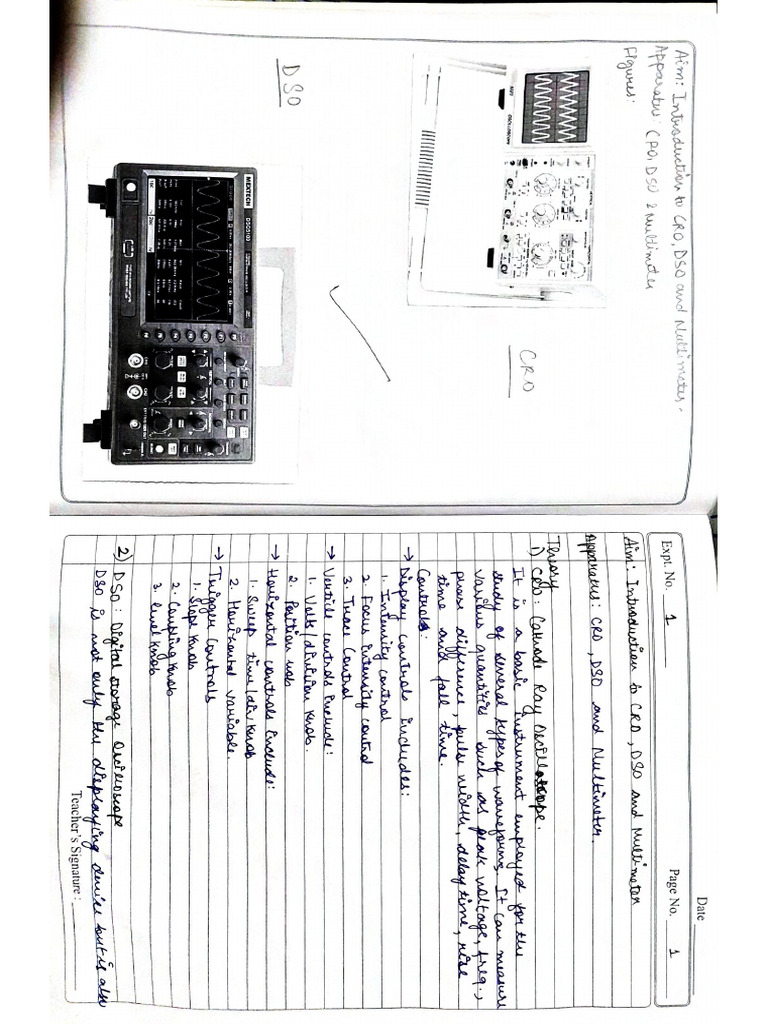 Aim: Introduction to CRO, DSO and Multimeter.
Apparatus: CRO, DSO & Multimeter
Figures:
CRO
DSO
MEXTECH
DSO5100
Date
Expt. No. 1
Page No. 1
Aim: Introduction to CRO, DSO and Multimeter
Apparatus: CRO, DSO and Multimeter.
Theory
1) CRO: Cathode Ray Oscilloscope.
It is a basic instrument employed for the
study of several types of waveforms. It can measure
various quantities such as peak voltage, freq.,
phase difference, pulse width, delay time, rise
time and fall time.
Controls:
→ Display controls includes:
1. Intensity control
2. Focus intensity control
3. Trace Control
→ Verticle controls include:
1. Volts/division knob.
2. Position knob
→ Horizontal controls include:
1. Sweep time/div Knob
2. Horizontal variable.
→ Trigger Controls
1. Slope Knob
2. Coupling Knob
3. Level Knob
2) DSO: Digital storage Oscilloscope
DSO is not only the displaying device but is also
Teacher's Signature: